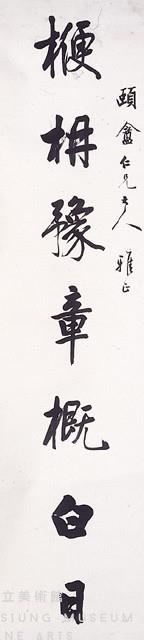 頤盦仁兄大人 雅正
楩枏豫章概白日
立美術館
SIUNG MUSEUM
NE ARTS